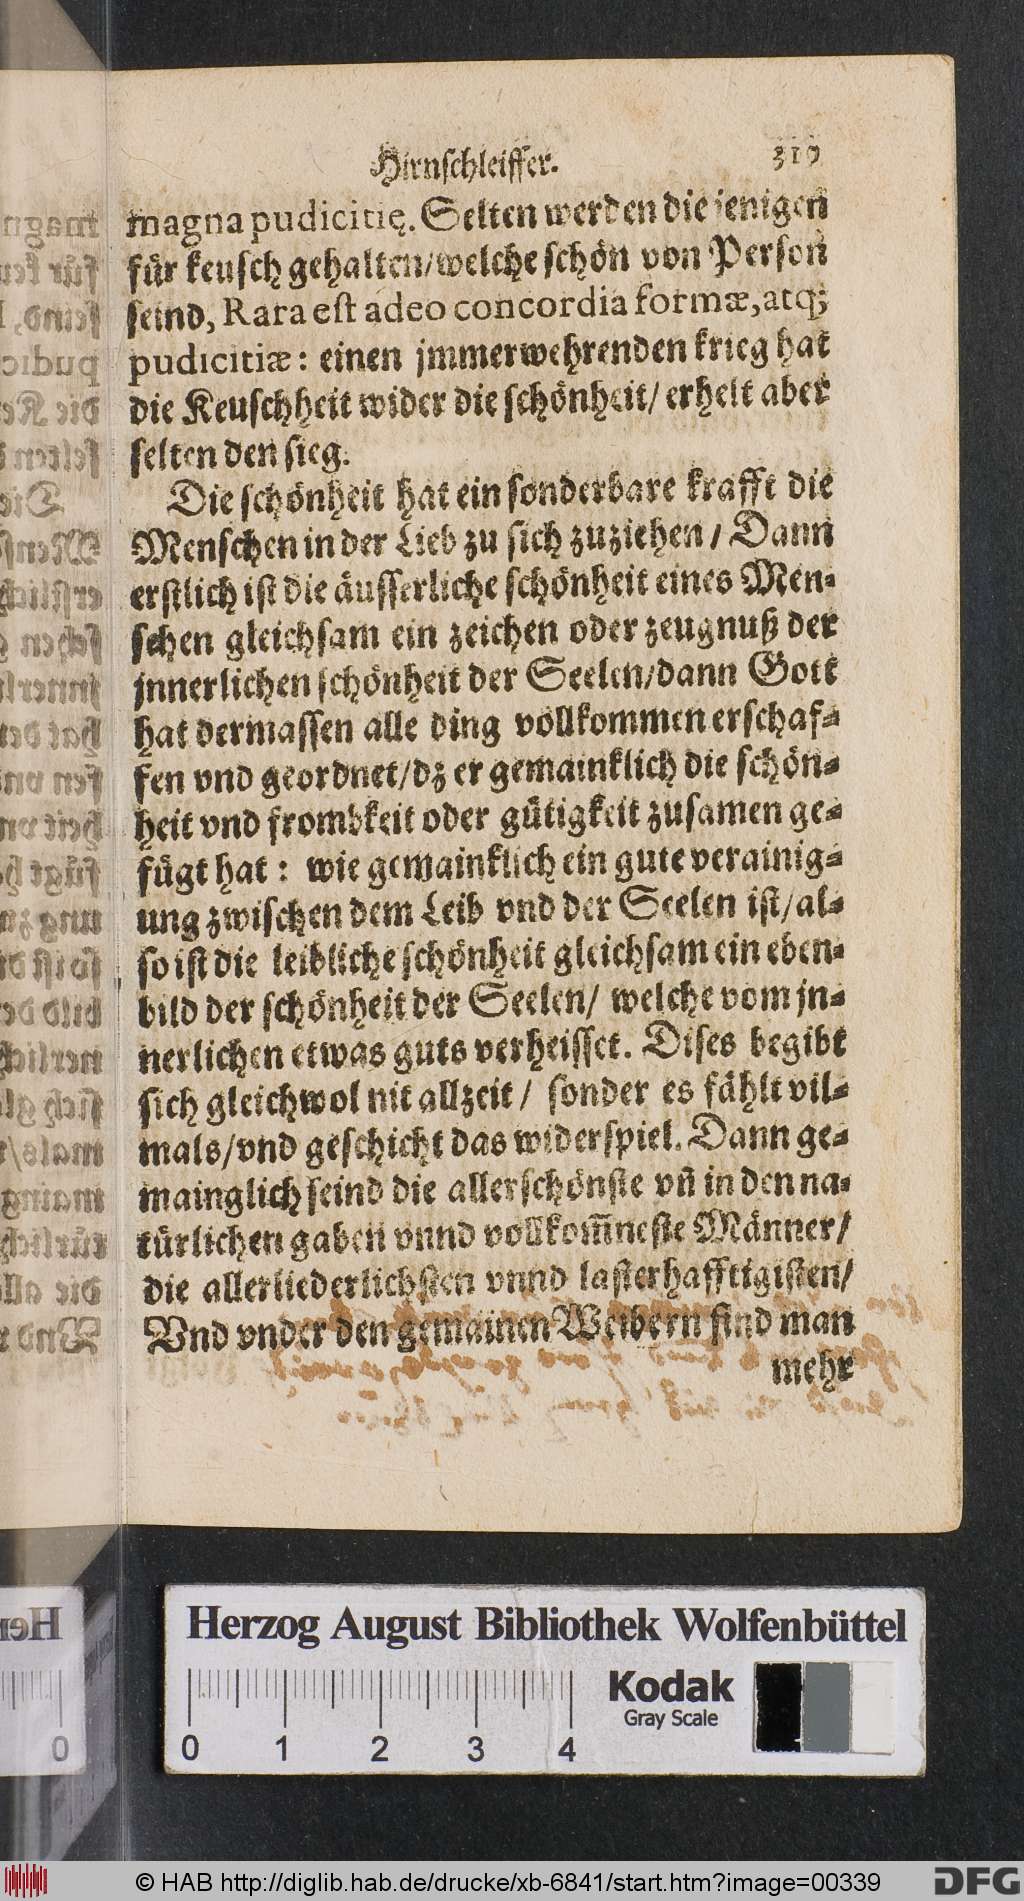 Hirnschleiffer. 319
magna pudicitię. Selten werden die jenigen
für keusch gehalten/welche schön von Person
seind, Rara est adeo concordia formæ, atq;
pudicitiæ: einen jmmerwehrenden krieg hat
die Keuschheit wider die schönheit/ erhelt aber
selten den sieg.
Die schönheit hat ein sonderbare krafft die
Menschen in der Lieb zu sich zuziehen / Dann
erstlich ist die äusserliche schönheit eines Men-
schen gleichsam ein zeichen oder zeugnuß der
jnnerlichen schönheit der Seelen/dann Gott
hat dermassen alle ding vollkommen erschaf-
fen vnd geordnet/dz er gemainklich die schön-
heit vnd frombkeit oder gütigkeit zusamen ge-
fügt hat: wie gemainklich ein gute verainig-
ung zwischen dem Leib vnd der Seelen ist/al-
so ist die leibliche schönheit gleichsam ein eben-
bild der schönheit der Seelen/ welche vom jn-
nerlichen etwas guts verheisset. Dises begibt
sich gleichwol nit allzeit / sonder es fählt vil-
mals/vnd geschicht das widerspiel. Dann ge-
mainglich seind die allerschönste vñ in den na-
türlichen gaben vnnd vollkom̃neste Männer/
die allerliederlichsten vnnd lasterhafftigisten/
Vnd vnder den gemainen Weibern find man
mehr
Herzog August Bibliothek Wolfenbüttel
Kodak
Gray Scale
0 1 2 3 4
© HAB http://diglib.hab.de/drucke/xb-6841/start.htm?image=00339
DFG